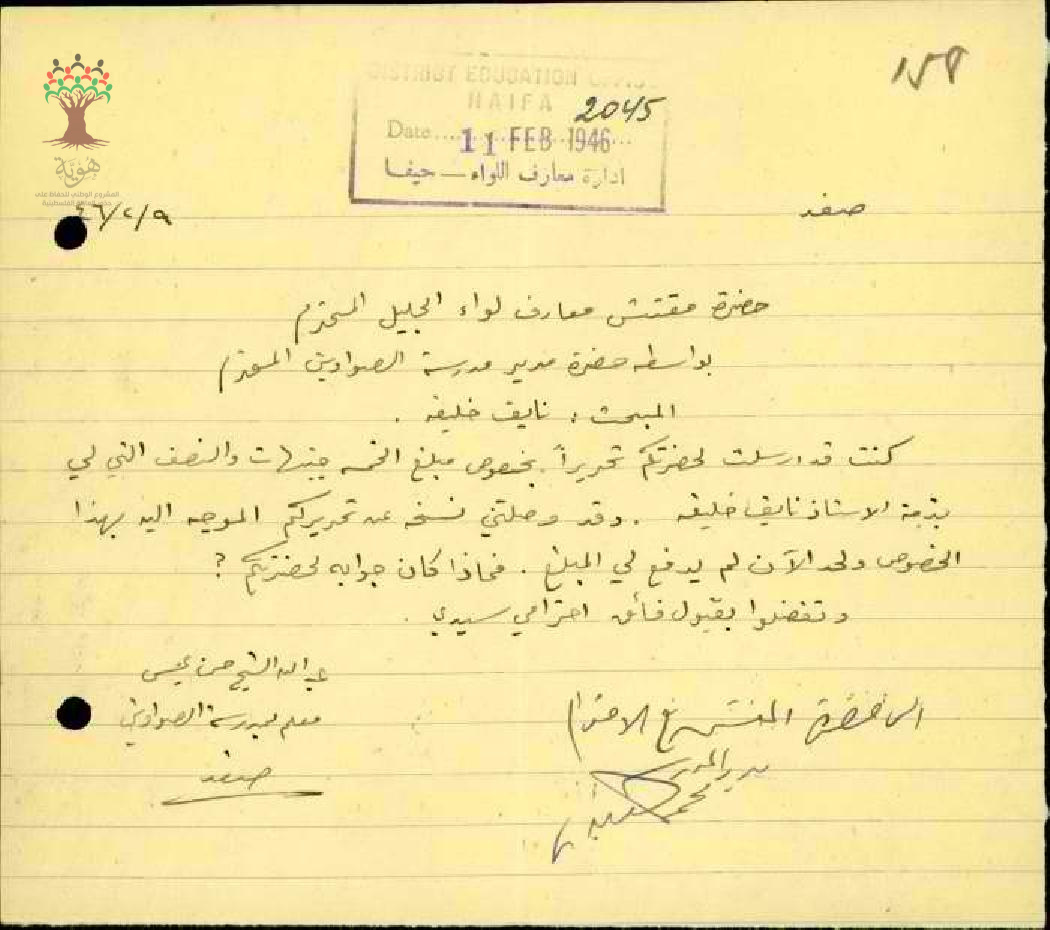 ١٥٨
DISTRICT EDUCATION OFFICE
HAIFA
2045
Date 11 FEB 1946
ادارة معارف اللواء — حيفا
هُوِيَّة
المشروع الوطني للحفاظ على
صفد
٤٦/٢/٩
حضرة مفتش معارف لواء الجليل المحترم
بواسطة حضرة مدير مدرسة الصواوين المحترم
المبحث : نايف خليفه .
كنت قد ارسلت لحضرتكم تحريراً بخصوص مبلغ الخمسة جنيهات والنصف التي لي
بذمة الاستاذ نايف خليفه . وقد وصلتني نسخة عن تحريركم الموجه اليه بهذا
الخصوص ولحد الآن لم يدفع لي المبلغ . فماذا كان جوابه لحضرتكم ؟
وتفضلوا بقبول فائق احترامي سيدي .
عبد الله الشيخ حسن
معلم بمدرسة الصواوين
صفد
الى حضرة المفتش مع الاحترام
مدير المدرسة
محمد